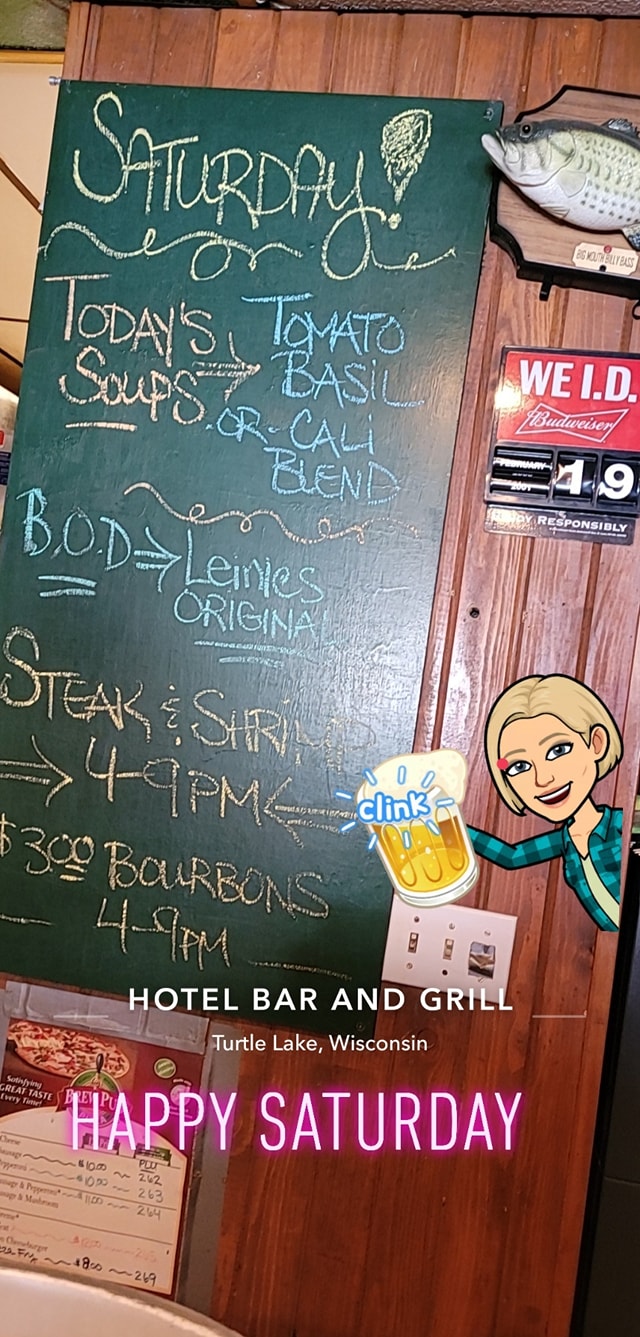 SATURDAY!
TODAY'S SOUPS → TOMATO BASIL
-OR- CALI BLEND
B.O.D ⇒ Leinies ORIGINAL
STEAK & SHRIMP
⇒ 4-9PM ⇐
$3.00 BOURBONS
4-9PM
BIG MOUTH BILLY BASS
WE I.D.
Budweiser
FEBRUARY 19
2001
RESPONSIBLY
clink
HOTEL BAR AND GRILL
Turtle Lake, Wisconsin
HAPPY SATURDAY
Satisfying
GREAT TASTE
Every Time!
BREW PUB
PLU
Cheese
$10.00 262
$10.00 263
Sausage & Mushroom $11.00 264
Cheeseburger
$8.00 269